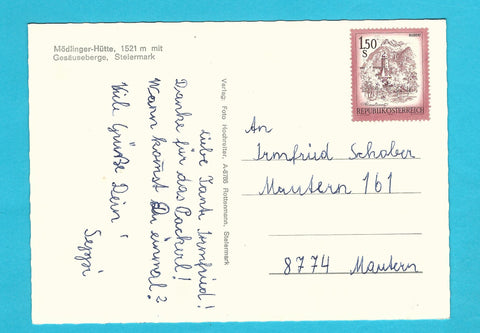 Mödlinger-Hütte, 1521 m mit
Gesäuseberge, Steiermark
Liebe Tante Irmfried!
Danke für das Packerl!
Wann kommst Du einmal?
Viele Grüße Dein
Seppi
Verlag: Foto Hochreiter, A-8786 Rottenmann, Steiermark
1.50
S
REPUBLIK ÖSTERREICH
An
Irmfried Schober
Mautern 161
8774 Mautern